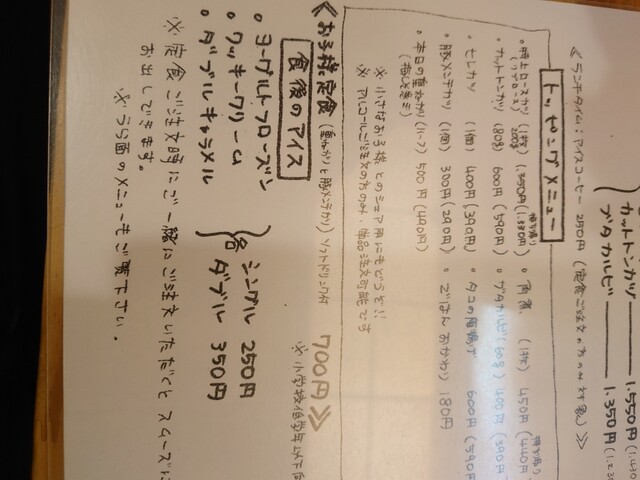 カットトンカツ 1.550円
ブタカルビ 1.350円
≪ランチタイム：アイスコーヒー 250円（定食ご注文の方のみ対象）≫
トッピングメニュー
・特上ロースカツ（1枚）1.350円（1.330円）
・カットトンカツ（80g）600円（590円）
・ヒレカツ（1個）400円（390円）
・豚メンチカツ（1個）300円（290円）
・本日の重ねカツ（ハーフ）500円（490円）
・角煮（1枚）450円（440円）
・ブタカルビ（60g）400円（390円）
・タコの唐揚げ 600円（590円）
・ごはんおかわり 180円
※小さなお子様とのシェア用にもどうぞ!!
※アルコールご注文の方のみ、単品注文可能です
≪お子様定食（重ねカツと豚メンチカツ）ソフトドリンク付 700円≫
※小学校低学年以下
食後のアイス
・ヨーグルトフローズン
・クッキークリーム
・ダブルキャラメル
各 シングル 250円
ダブル 350円
※定食ご注文時にご一緒にご注文いただくとスムーズに
お出しできます。
※うら面のメニューもご覧下さい。